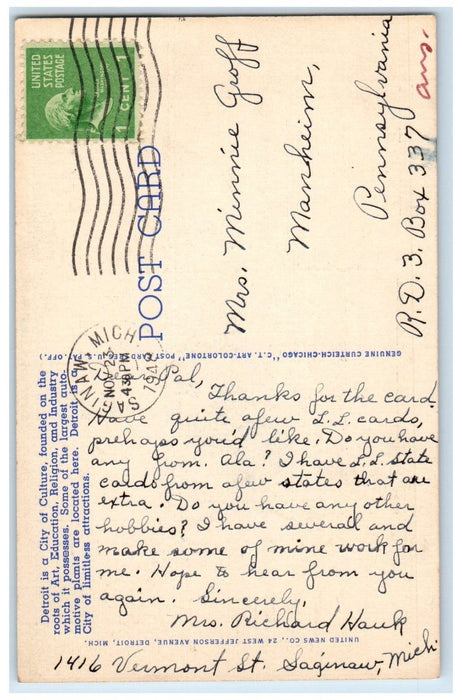 UNITED
STATES
POSTAGE
1 CENT 1
POST CARD
SAGINAW MICH
NOV 23
430 PM
1948
Mrs. Minnie Groff
Manheim,
Pennsylvania
R.D. 3. Box 337
ans.
GENUINE CURTEICH-CHICAGO "C.T. ART-COLORTONE" POST CARD (REG. U.S. PAT. OFF.)
Detroit is a City of Culture, founded on the
roots of Art, Education, Religion, and Industry
which it possesses. Some of the largest auto-
motive plants are located here. Detroit is a
City of limitless attractions.
Dear Pal,
Thanks for the card.
Have quite afew L.L. cards,
prehaps you'd like. Do you have
any from. Ala? I have L.L. State
cards from afew states that are
extra. Do you have any other
hobbies? I have severall and
make some of mine work for
me. Hope to hear from you
again. Sincerely,
Mrs. Richard Hauk
1416 Vermont St. Saginaw, Mich
UNITED NEWS CO., 24 WEST JEFFERSON AVENUE, DETROIT, MICH.